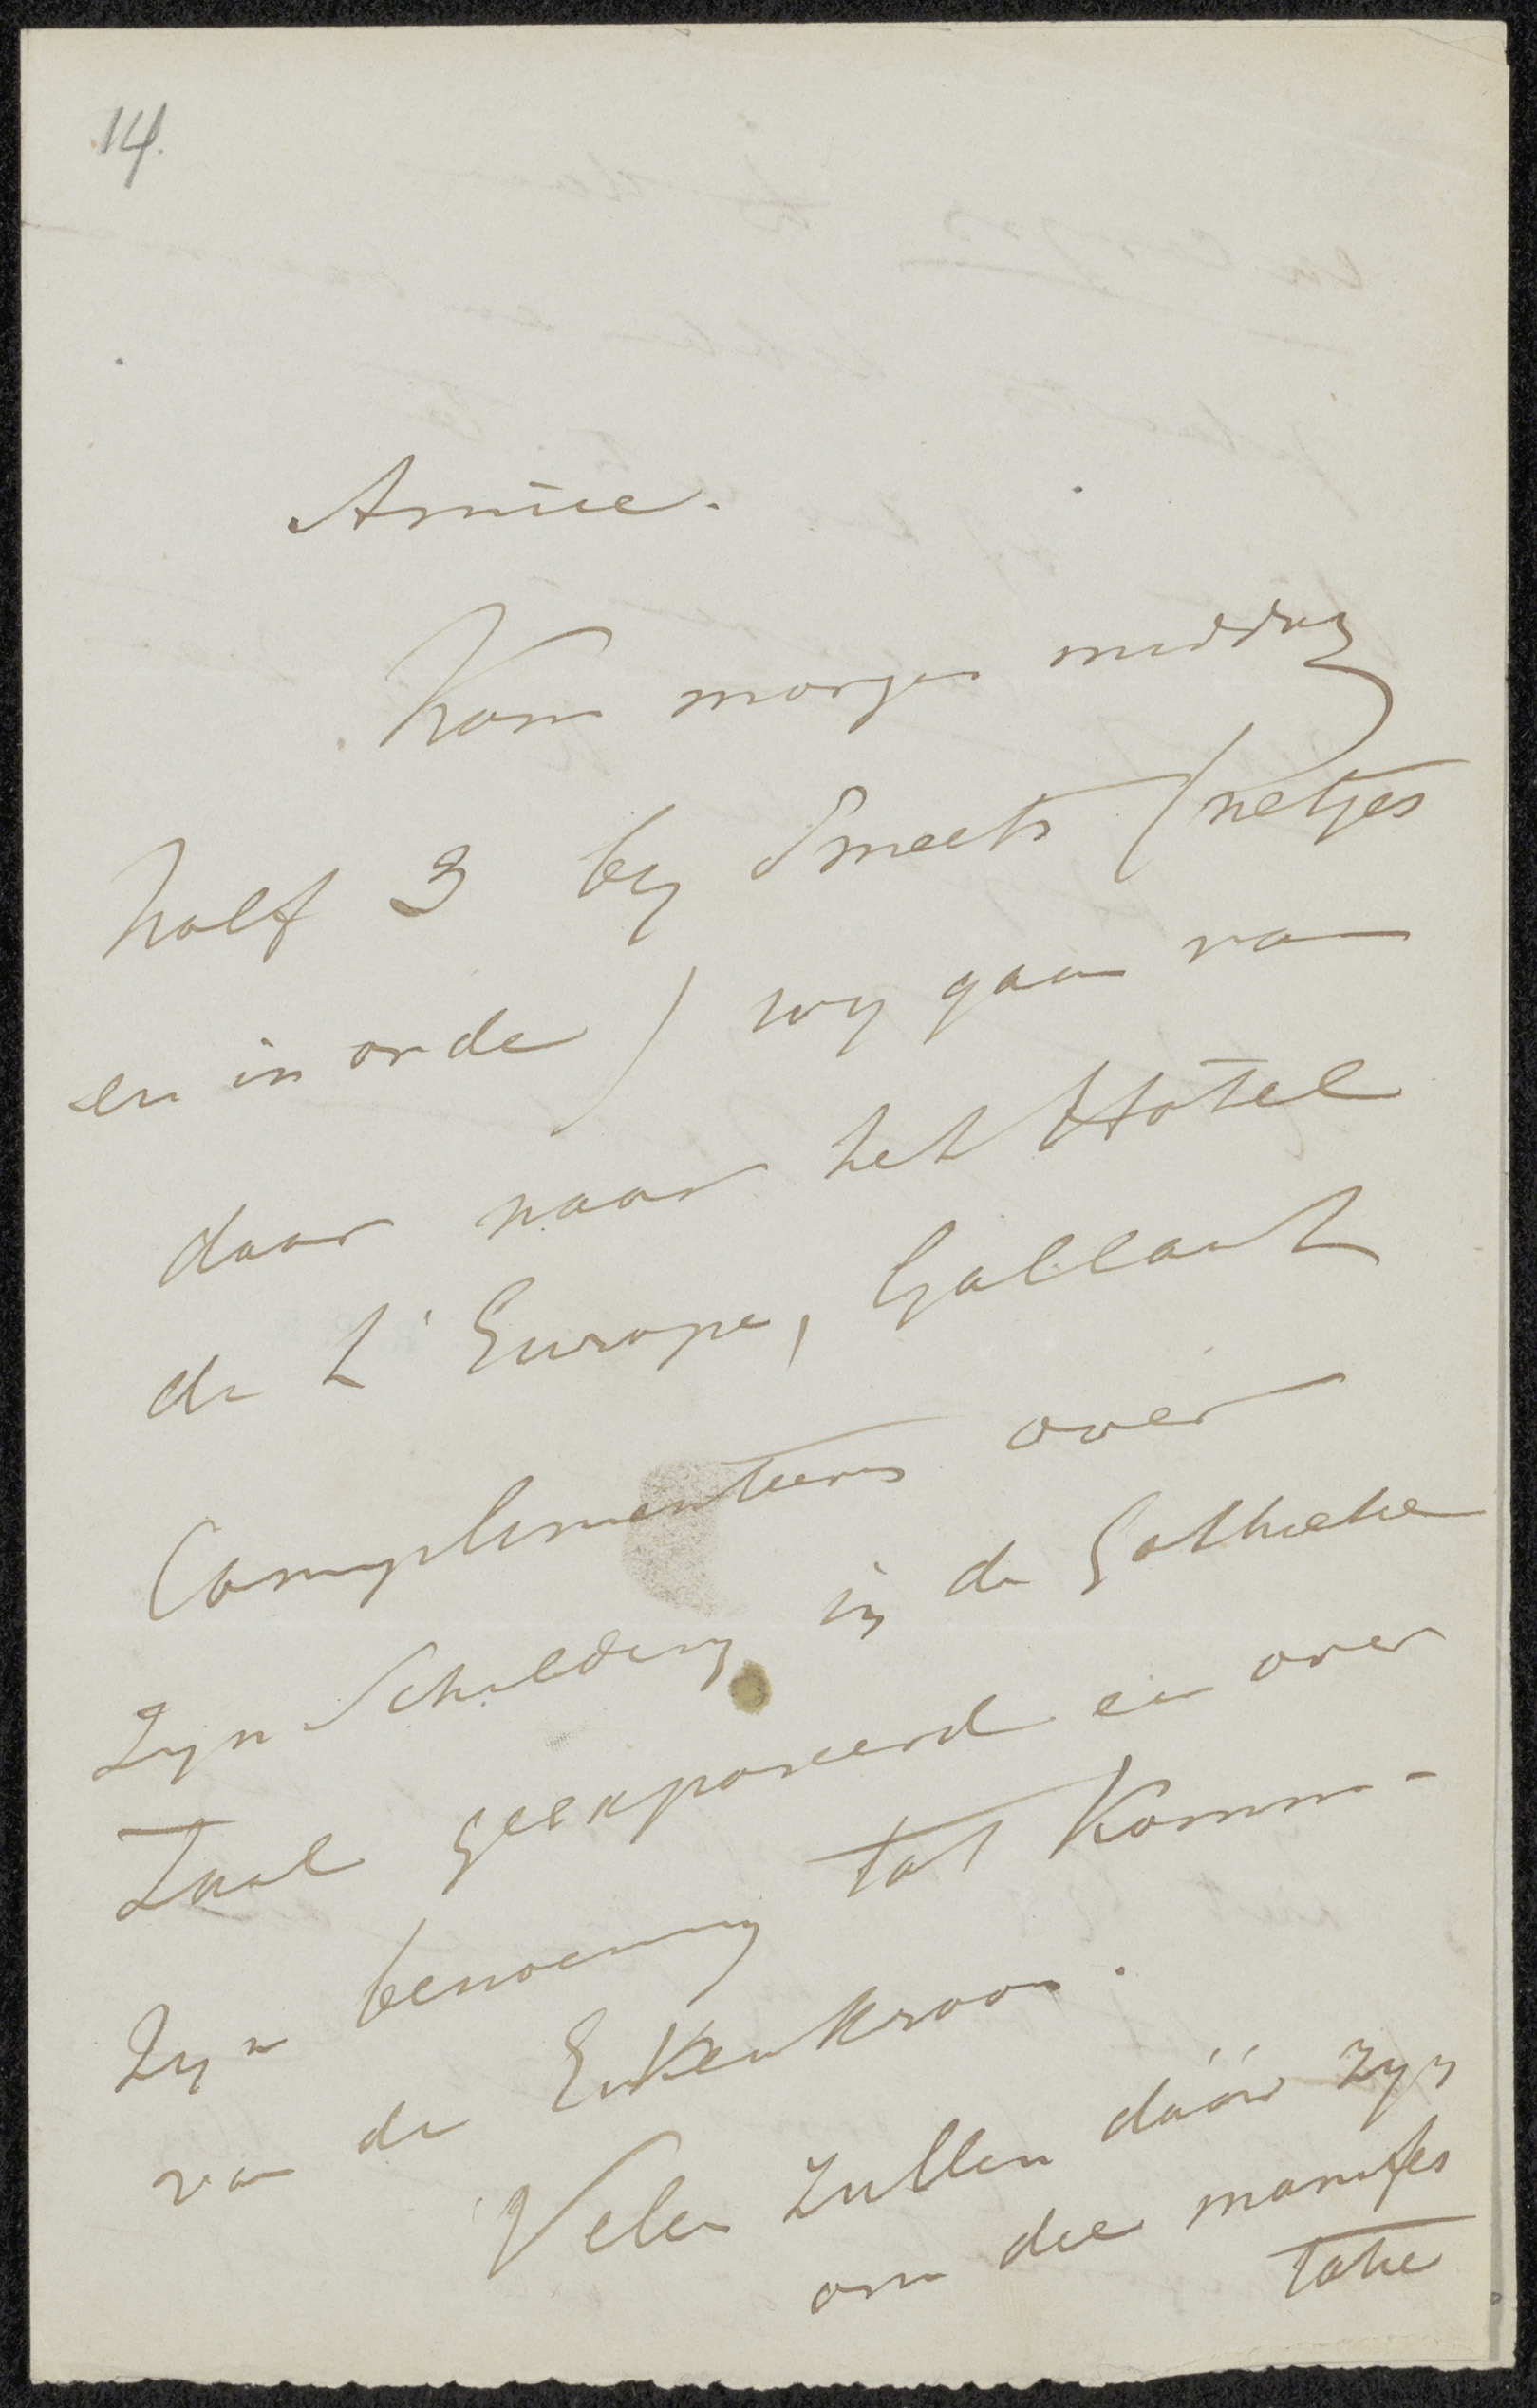 14.
Amice.
Kom morgen middag
half 3 by Smeets (netjes
en in orde) wy gaan van
daar naar het Hôtel
de L'Europe, Gallait
Complimenteren over
Zyn Schildery in de Gothieke
Zaal geexposeerd en over
Zyn benoeming tot Komm-
van de Eikenkroon.
Velen zullen dáár zyn
om die manifes
tatie